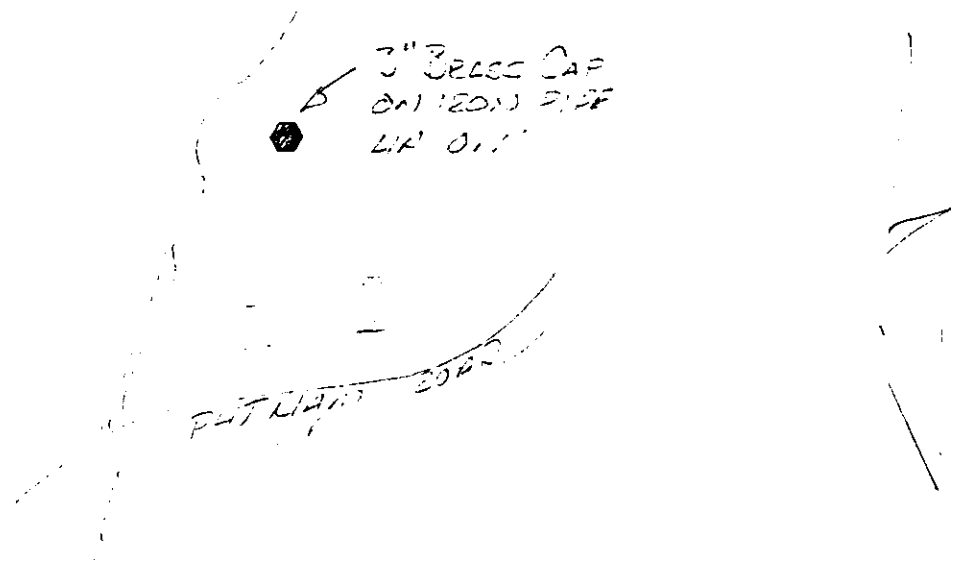 3" BRASS CAP
ON IRON PIPE
UP 0.1'
PUTNAM ROAD